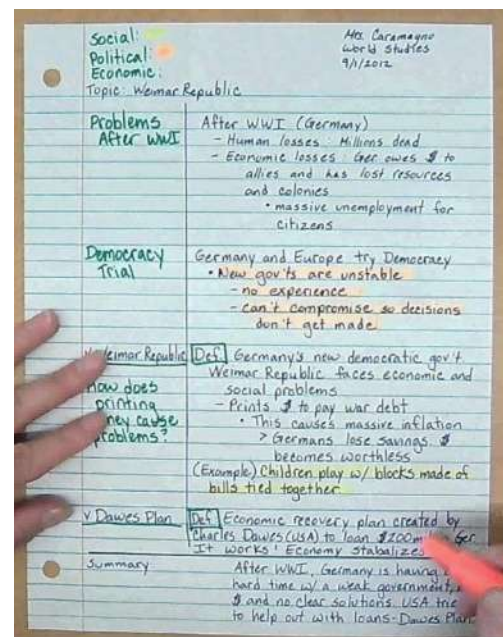 Social:
Political:
Economic:
Mrs. Caramagno
World Studies
9/1/2012
Topic: Weimar Republic
Problems
After WWI
After WWI (Germany)
- Human losses: Millions dead
- Economic losses: Ger owes $ to
allies and has lost resources
and colonies
• massive unemployment for
citizens
Democracy
Trial
Germany and Europe try Democracy
• New gov'ts are unstable
- no experience
- can't compromise so decisions
don't get made
Weimar Republic
How does
printing
problems?
Def: Germany's new democratic gov't.
Weimar Republic faces economic and
social problems
- Prints $ to pay war debt
• This causes massive inflation
> Germans lose savings. $
becomes worthless
(Example) Children play w/ blocks made of
bills tied together
v Dawes Plan
Def: Economic recovery plan created by
Charles Dawes (USA) to loan $200 Ger.
It works! Economy stabalizes
Summary
After WWI, Germany is having
hard time w/ a weak government,
$ and no clear solutions. USA
to help out with loans-Dawes Plan